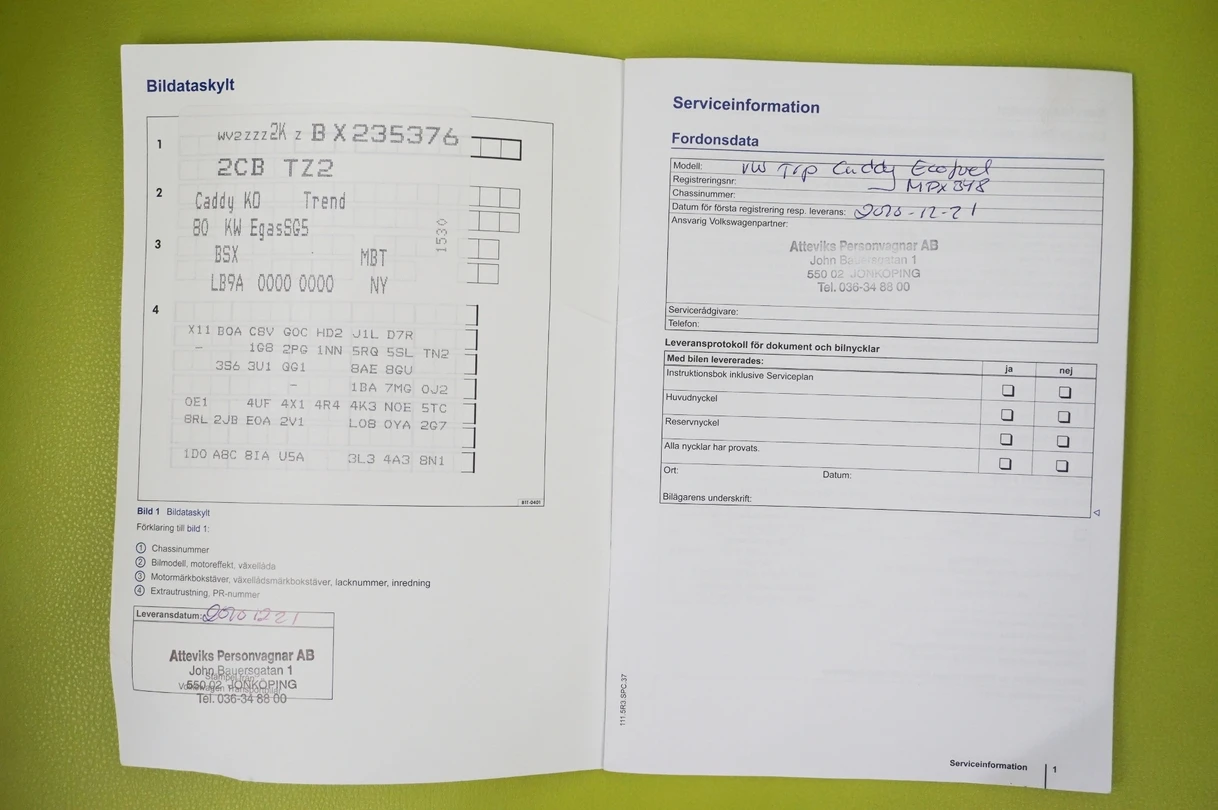 Bildataskylt
1
WV2ZZZ2K Z BX235376
2CB TZ2
2
Caddy KO Trend
80 KW EgasSG5
1530
3
BSX MBT
LB9A 0000 0000 NY
4
X11 B0A C8V G0C HD2 J1L D7R
- 1G8 2PG 1NN 5RQ 5SL TN2
3S6 3U1 GG1 8AE 8GU
- 1BA 7MG 0J2
0E1 4UF 4X1 4R4 4K3 N0E 5TC
8RL 2JB E0A 2V1 L08 0YA 2G7
1D0 A8C 8IA U5A 3L3 4A3 8N1
Bild 1 Bildataskylt
Förklaring till bild 1:
1 Chassinummer
2 Bilmodell, motoreffekt, växellåda
3 Motormärkbokstäver, växellådsmärkbokstäver, lacknummer, inredning
4 Extrautrustning, PR-nummer
Leveransdatum: 20101221
Atteviks Personvagnar AB
John Bauersgatan 1
550 02 JÖNKÖPING
Tel. 036-34 88 00
Serviceinformation
Fordonsdata
Modell: VW Trp Caddy Ecofuel
Registreringsnr: MPX 848
Chassinummer:
Datum för första registrering resp. leverans: 2010-12-21
Ansvarig Volkswagenpartner:
Atteviks Personvagnar AB
John Bauersgatan 1
550 02 JÖNKÖPING
Tel. 036-34 88 00
Servicerådgivare:
Telefon:
Leveransprotokoll för dokument och bilnycklar
Med bilen levererades: ja nej
Instruktionsbok inklusive Serviceplan
Huvudnyckel
Reservnyckel
Alla nycklar har provats.
Ort: Datum:
Bilägarens underskrift:
111.5R3.SPC.37
Serviceinformation 1